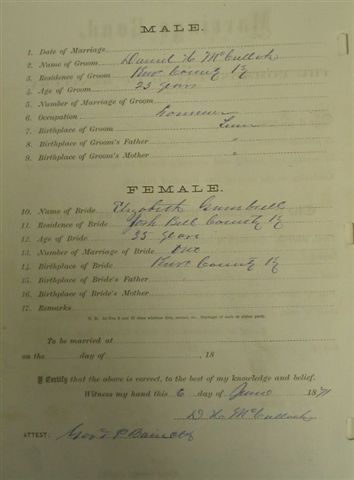 MALE.
1. Date of Marriage
2. Name of Groom Daniel H McCulloch
3. Residence of Groom Knox County Ky
4. Age of Groom 23 years
5. Number of Marriage of Groom
6. Occupation
7. Birthplace of Groom Tenn
8. Birthplace of Groom's Father "
9. Birthplace of Groom's Mother "
FEMALE.
10. Name of Bride Elizabeth
11. Residence of Bride Josh Bell County Ky
12. Age of Bride 35 years
13. Number of Marriage of Bride One
14. Birthplace of Bride Knox County Ky
15. Birthplace of Bride's Father
16. Birthplace of Bride's Mother
17. Remarks
To be married at
on the day of , 18
I Certify that the above is correct, to the best of my knowledge and belief.
Witness my hand this 6 day of June 1871
D H McCulloch
ATTEST: